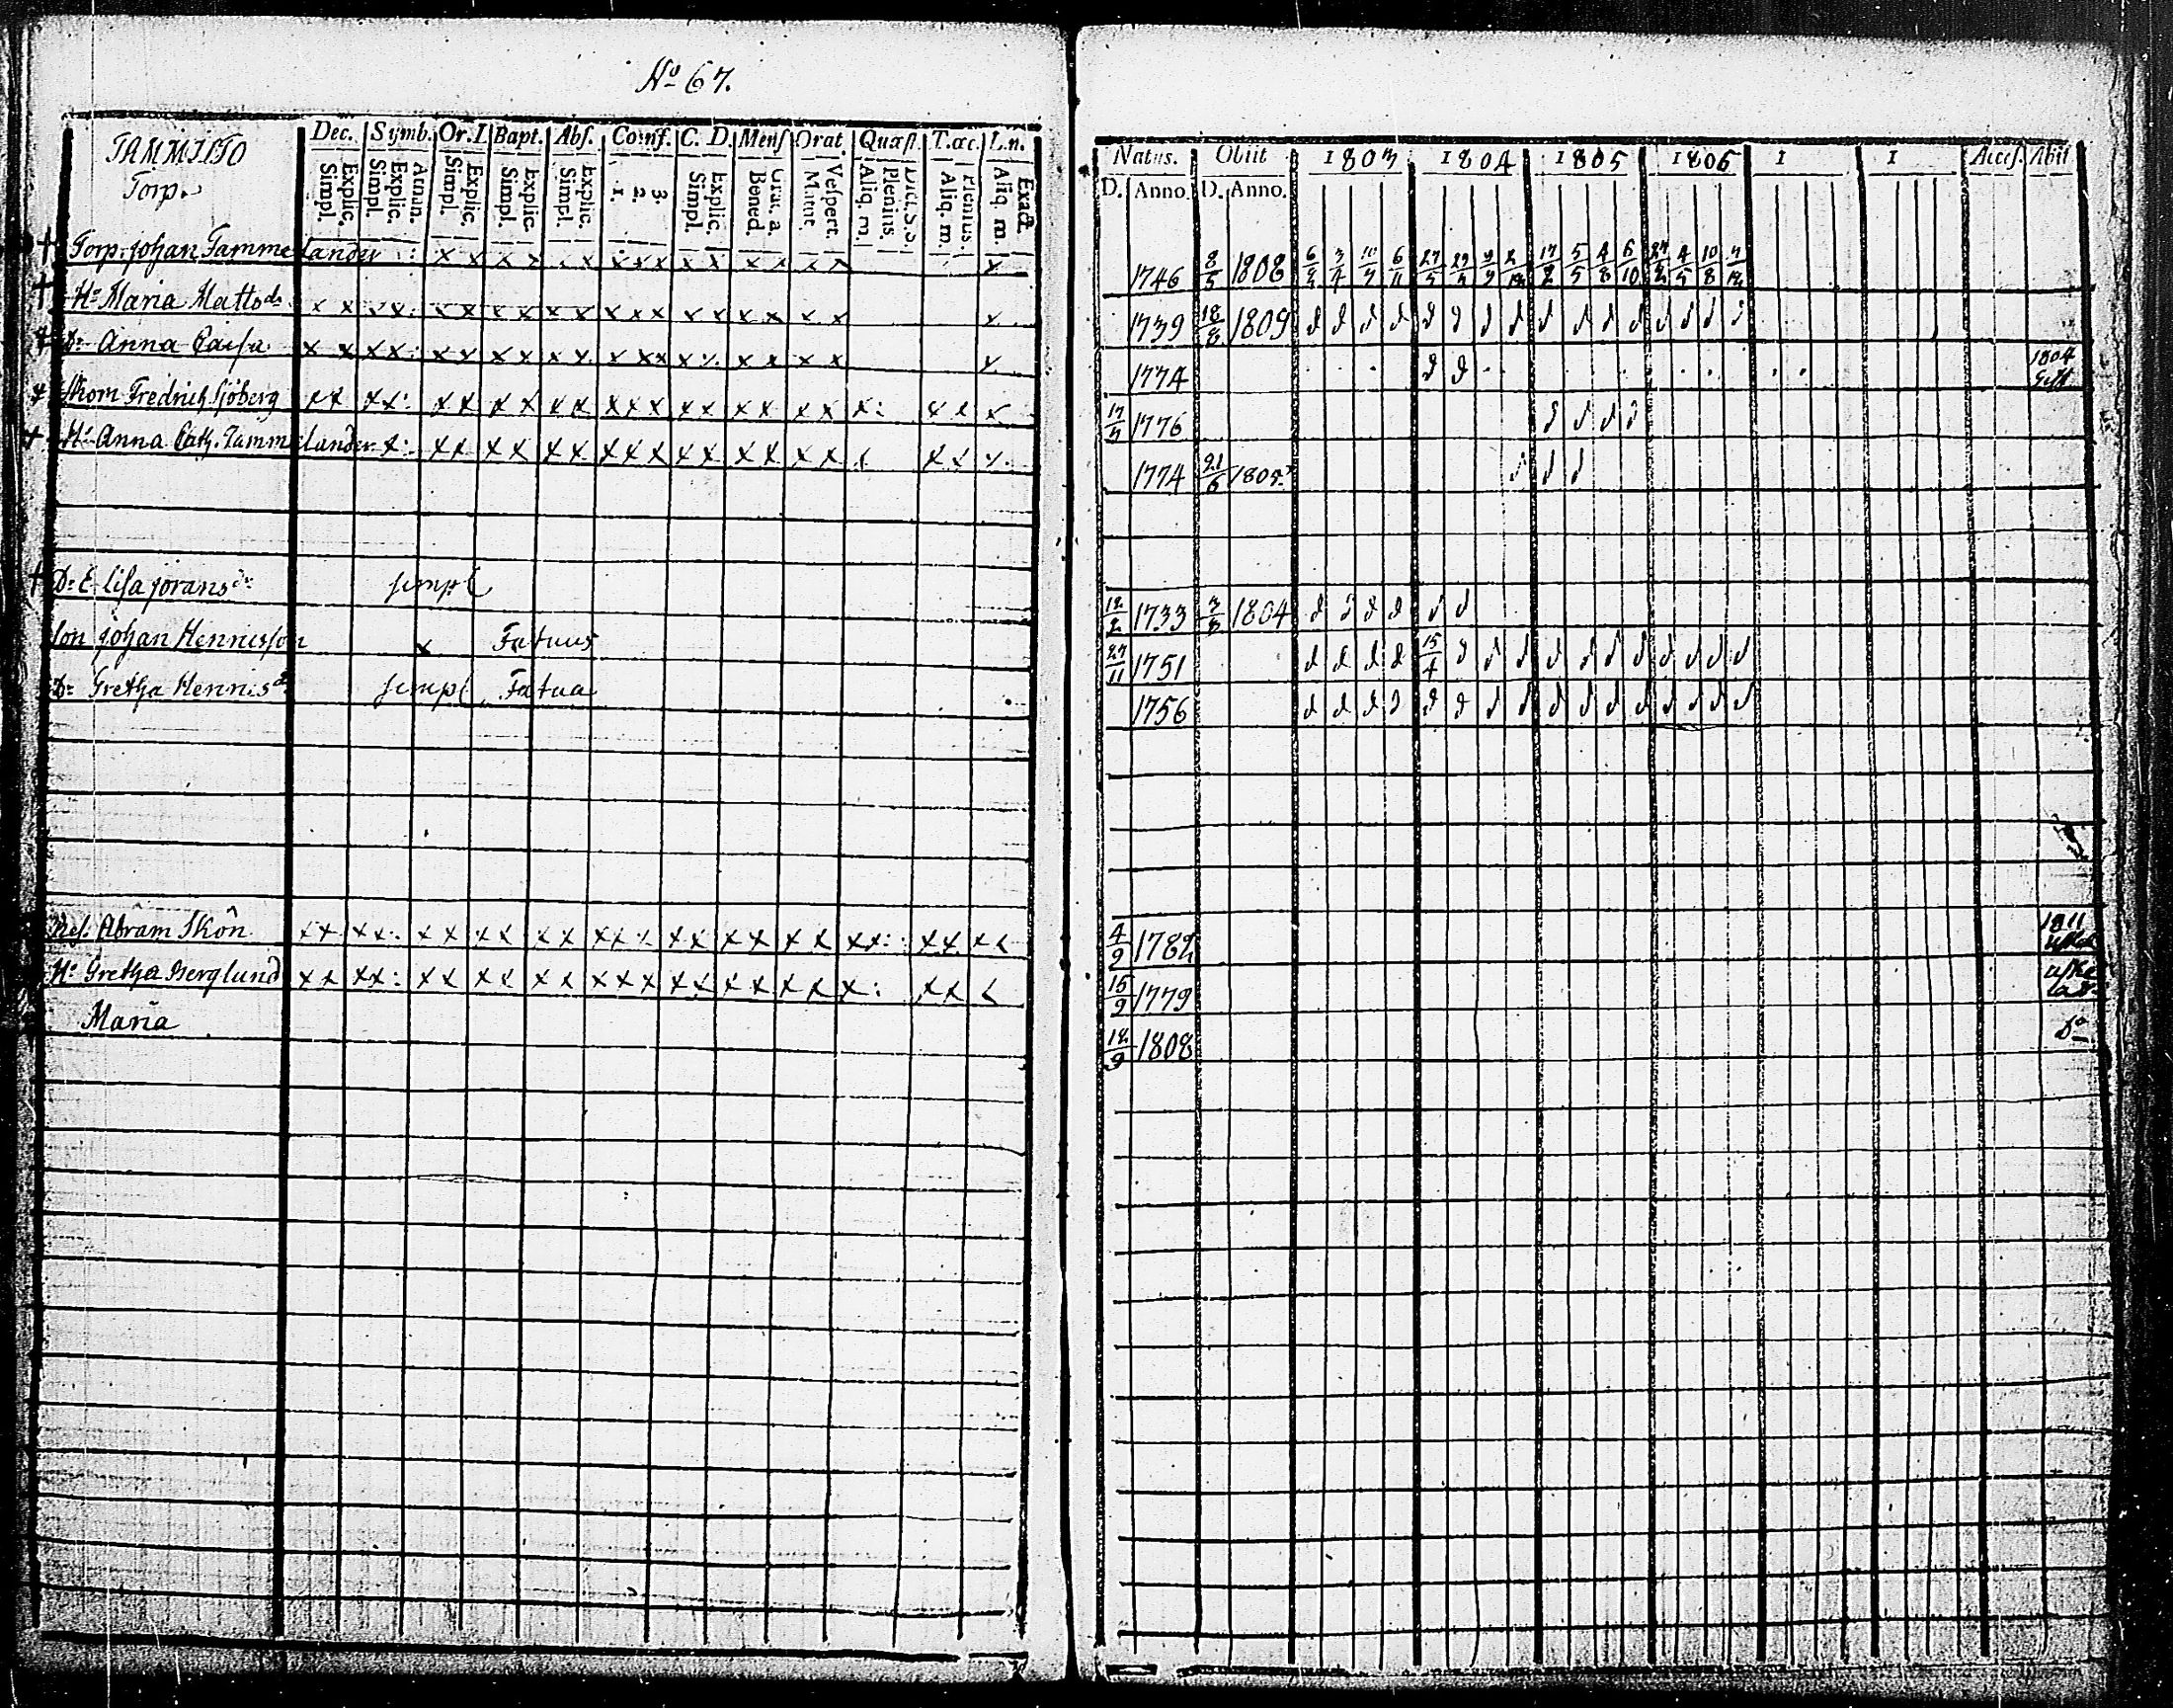 No 67.
TAMMISTO
Torp.
Dec. Symb. Or. D. Bapt. Abs. Conf. C. D. Mens Orat. Quæst. T. œc. L. n.
Explic. Simpl. Athan. Explic. Simpl. Explic. Simpl. Explic. Simpl. Explic. Simpl. 3. 2. 1. Explic. Simpl. Grat. a. Bened. Vespert. Matut. Dict. S. S. Plenius. Aliq. m. Plenius. Aliq. m. Exact. Aliq. m.
Torp. Johan Tammelander
Hu Maria Mattsdr
Dr Anna Caisa
Skom Fredrich Sjöberg
Hu Anna Cath. Tammelander
Dr Elisa Jöransdr simpl
Son Johan Hennisson x Fatuus
Dr Gretha Hennisdr simpl Fatua
Abram Skön
Hu Gretha Berglund
Maria
Natus. Obiit 1803 1804 1805 1806 1 1 Acces. Abiit
D. Anno. D. Anno.
1746 8/5 1808
1739 18/8 1809
1774 1804 Gift
17/7 1776
1774 21/6 1805
12/2 1733 3/3 1804
27/11 1751 15/4
1756
4/9 1782 1811
15/9 1779
12/9 1808 Do